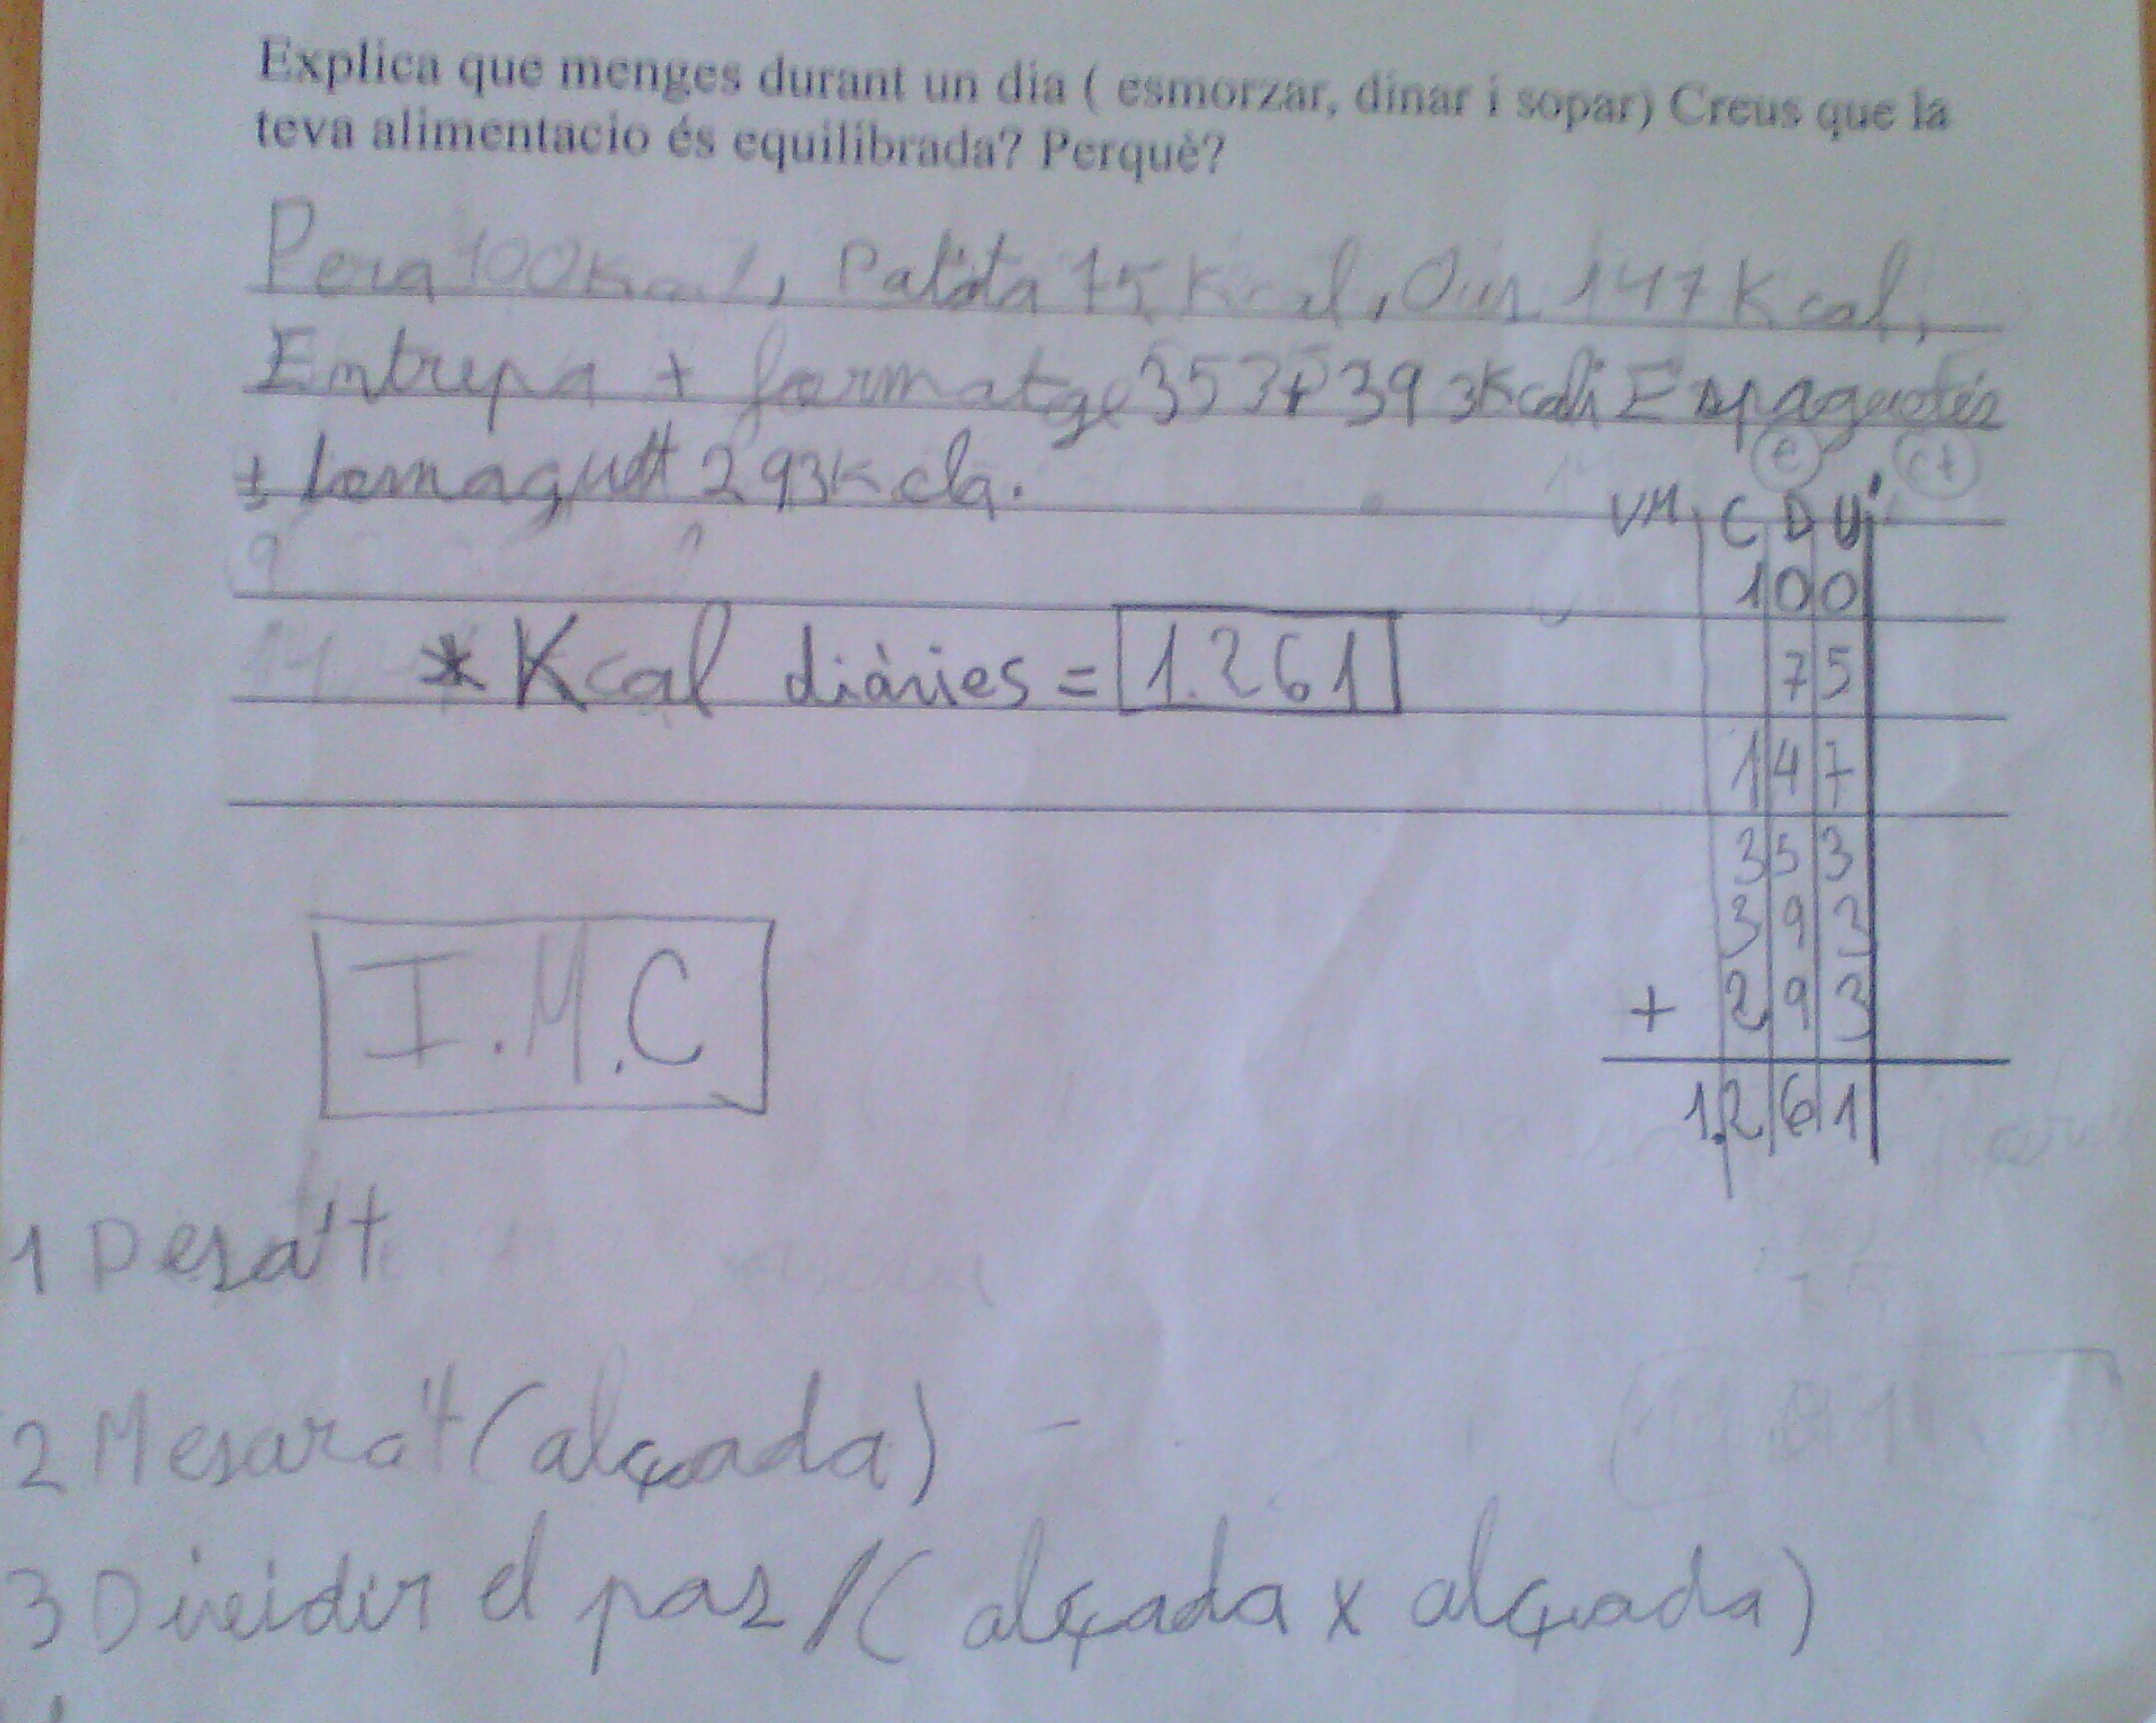 Explica que menges durant un dia ( esmorzar, dinar i sopar) Creus que la
teva alimentacio és equilibrada? Perquè?
Pera 100 Kcal, Patata 75 Kcal, Ous 147 Kcal,
Entrepa + formatge 353 + 393 Kcal i
+ 293 Kcla.
e ct
VM C D U
100
75
* Kcal diàries = 1.261
147
353
393
+ 293
1.261
I.M.C
1 Pesa't
2 Mesara't (alçada)
3 Dividir el pas / (alçada x alçada)